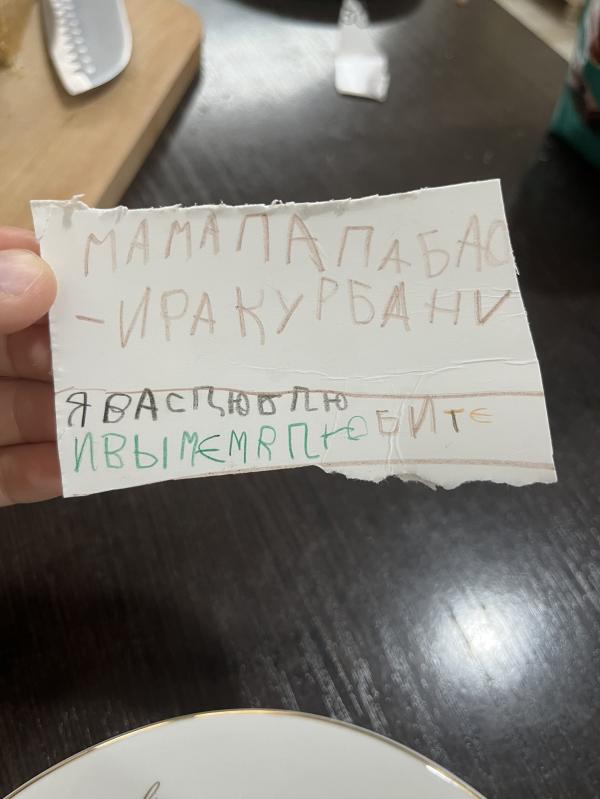 МАМА ПАПА БАС
-ИРА КУРБАНИ
Я ВАС ЦЮБЛЮ
И ВЫ МЕМЯ ЛЮБИТЕ